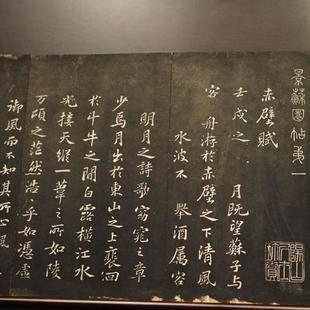 景蘇園帖弟一
赤壁賦
壬戌之 月既望蘇子與
客 舟游於赤壁之下清風
水波不 舉酒屬客
明月之詩歌窈窕之章
少焉月出於東山之上裵回
於斗牛之間白露橫江水
光接天縱一葦之所如陵
萬頃之茫然浩〻乎如憑虛
御風而不知其所止